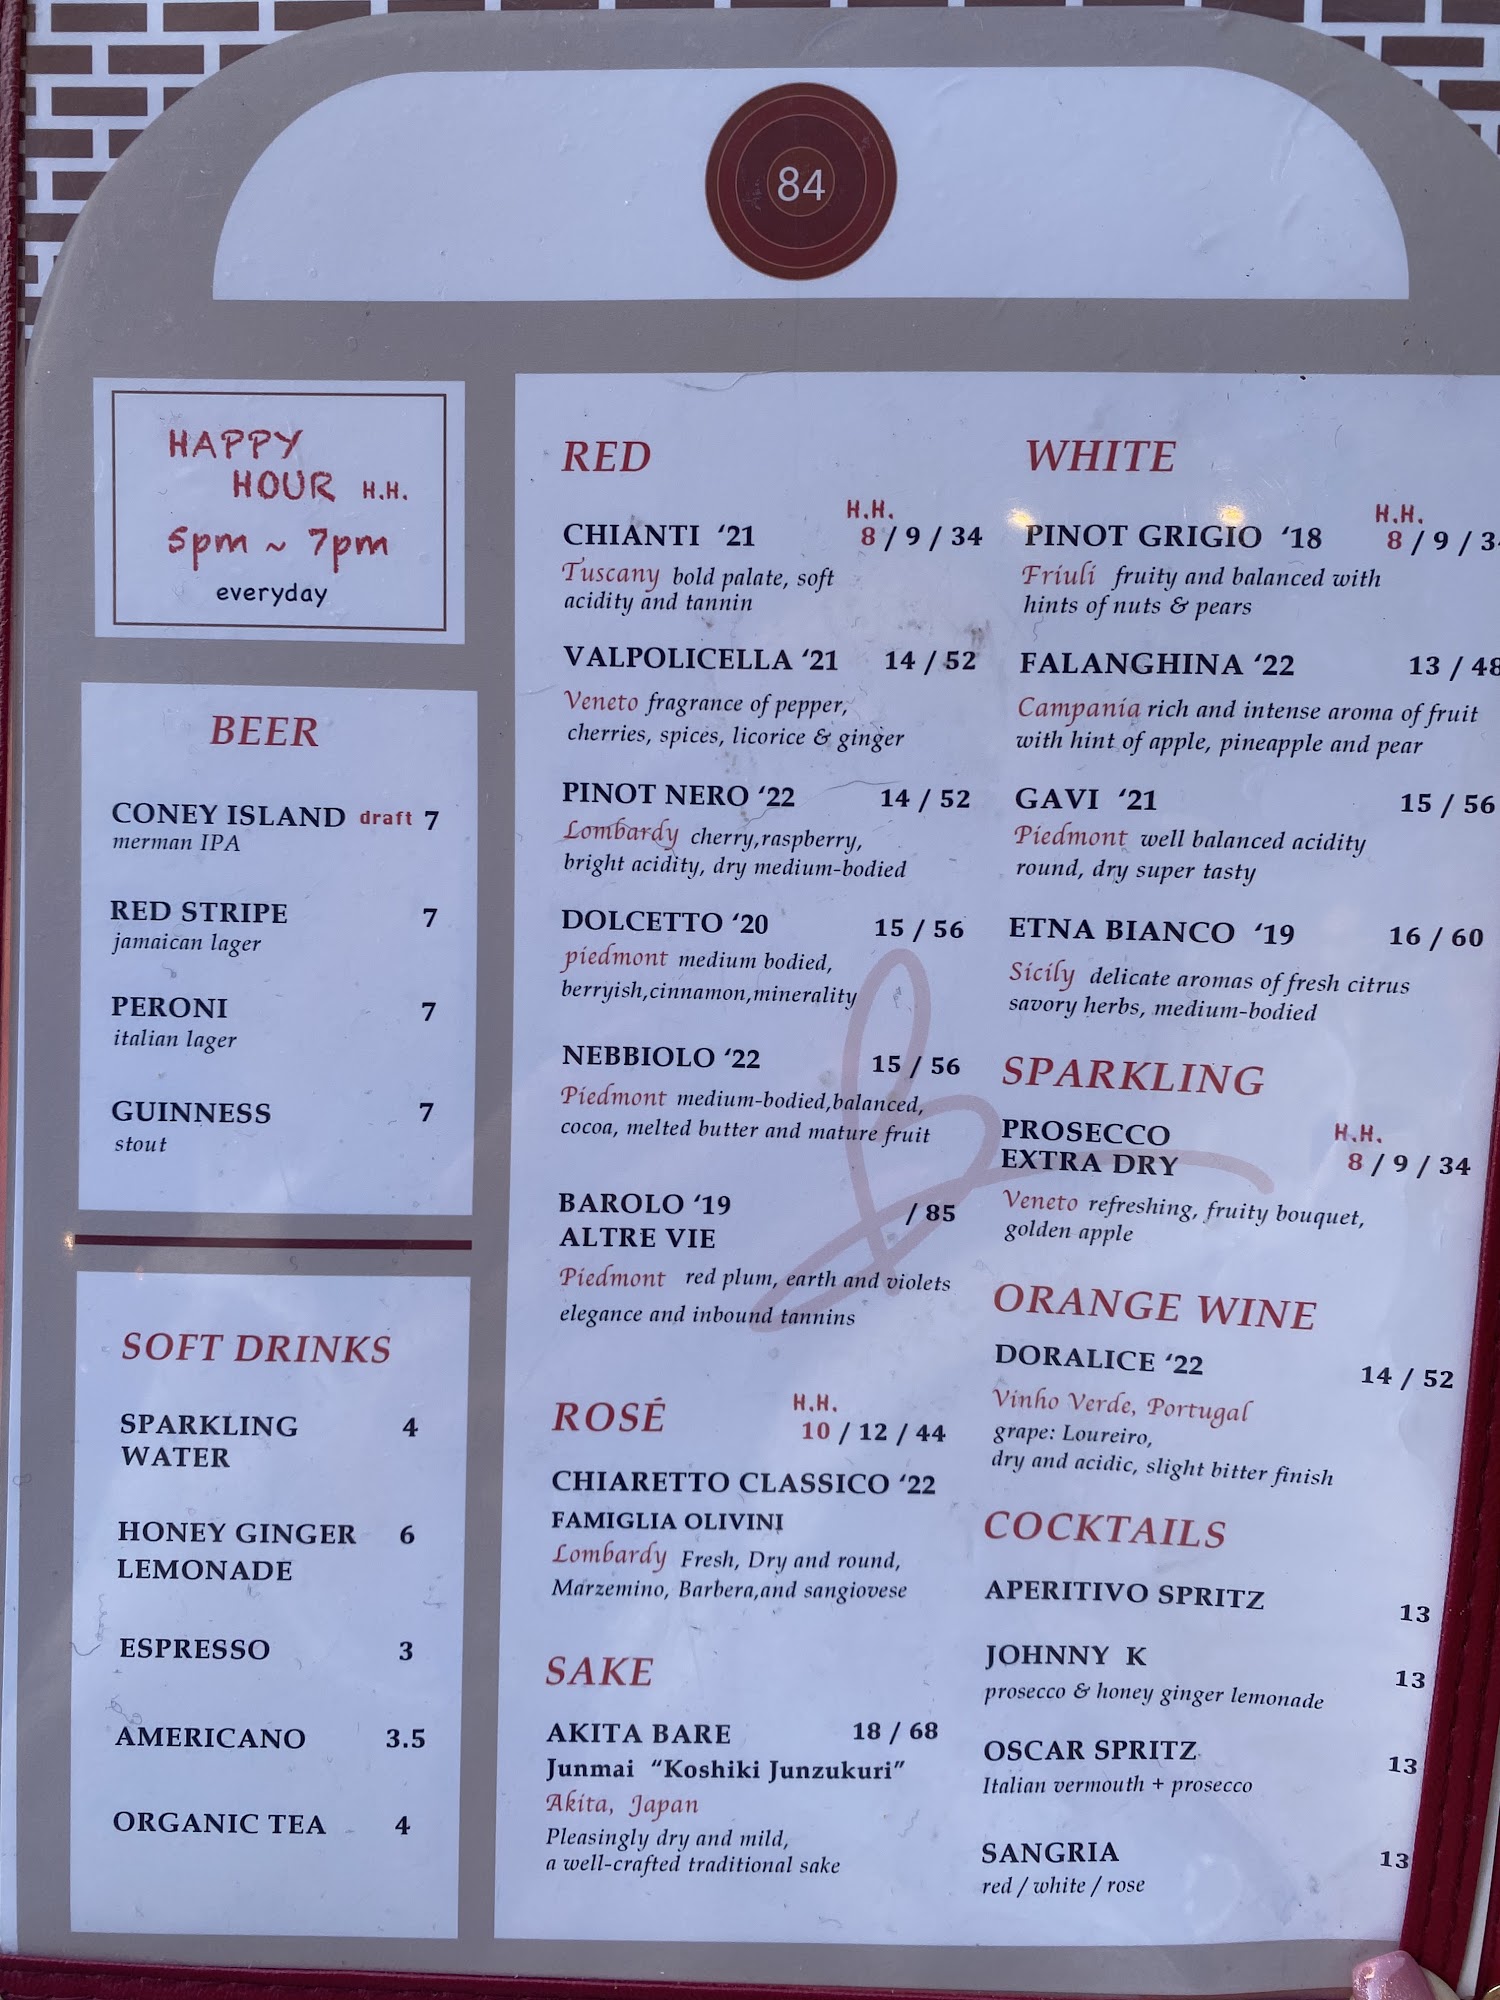 84
HAPPY
HOUR H.H.
5pm ~ 7pm
everyday
BEER
CONEY ISLAND draft 7
merman IPA
RED STRIPE 7
jamaican lager
PERONI 7
italian lager
GUINNESS 7
stout
SOFT DRINKS
SPARKLING 4
WATER
HONEY GINGER 6
LEMONADE
ESPRESSO 3
AMERICANO 3.5
ORGANIC TEA 4
RED
H.H.
CHIANTI ‘21 8 / 9 / 34
Tuscany bold palate, soft
acidity and tannin
VALPOLICELLA ‘21 14 / 52
Veneto fragrance of pepper,
cherries, spices, licorice & ginger
PINOT NERO ‘22 14 / 52
Lombardy cherry,raspberry,
bright acidity, dry medium-bodied
DOLCETTO ‘20 15 / 56
piedmont medium bodied,
berryish,cinnamon,minerality
NEBBIOLO ‘22 15 / 56
Piedmont medium-bodied,balanced,
cocoa, melted butter and mature fruit
BAROLO ‘19 / 85
ALTRE VIE
Piedmont red plum, earth and violets
elegance and inbound tannins
H.H.
ROSÉ 10 / 12 / 44
CHIARETTO CLASSICO ‘22
FAMIGLIA OLIVINI
Lombardy Fresh, Dry and round,
Marzemino, Barbera,and sangiovese
SAKE
AKITA BARE 18 / 68
Junmai “Koshiki Junzukuri”
Akita, Japan
Pleasingly dry and mild,
a well-crafted traditional sake
WHITE
H.H.
PINOT GRIGIO ‘18 8 / 9 / 3
Friuli fruity and balanced with
hints of nuts & pears
FALANGHINA ‘22 13 / 48
Campania rich and intense aroma of fruit
with hint of apple, pineapple and pear
GAVI ‘21 15 / 56
Piedmont well balanced acidity
round, dry super tasty
ETNA BIANCO ‘19 16 / 60
Sicily delicate aromas of fresh citrus
savory herbs, medium-bodied
SPARKLING
PROSECCO H.H.
EXTRA DRY 8 / 9 / 34
Veneto refreshing, fruity bouquet,
golden apple
ORANGE WINE
DORALICE ‘22 14 / 52
Vinho Verde, Portugal
grape: Loureiro,
dry and acidic, slight bitter finish
COCKTAILS
APERITIVO SPRITZ 13
JOHNNY K 13
prosecco & honey ginger lemonade
OSCAR SPRITZ 13
Italian vermouth + prosecco
SANGRIA 13
red / white / rose